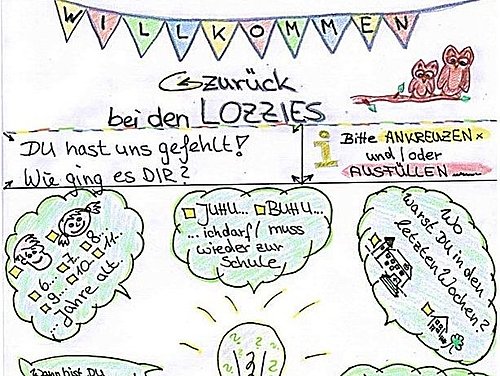 WILLKOMMEN
zurück
bei den LOZZIES
DU hast uns gefehlt!
Wie ging es DIR?
i
Bitte ANKREUZEN x
und/oder
AUSFÜLLEN
6... 7... 8...
9... 10... 11...
... Jahre alt.
JUHU... BUHU...
...ich darf / muss
wieder zur
Schule
Wo
warst DU in den
letzten Wochen?
Wann bist DU